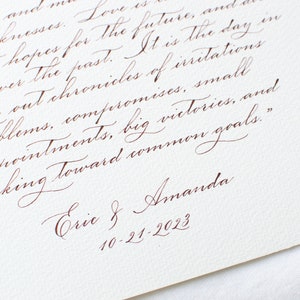 and ma
knesses. Love is
hopes for the future, and
ver the past. It is the day in
out chronicles of irritations
blems, compromises, small
ppointments, big victories, and
king toward common goals."
Eric & Amanda
10-21-2023